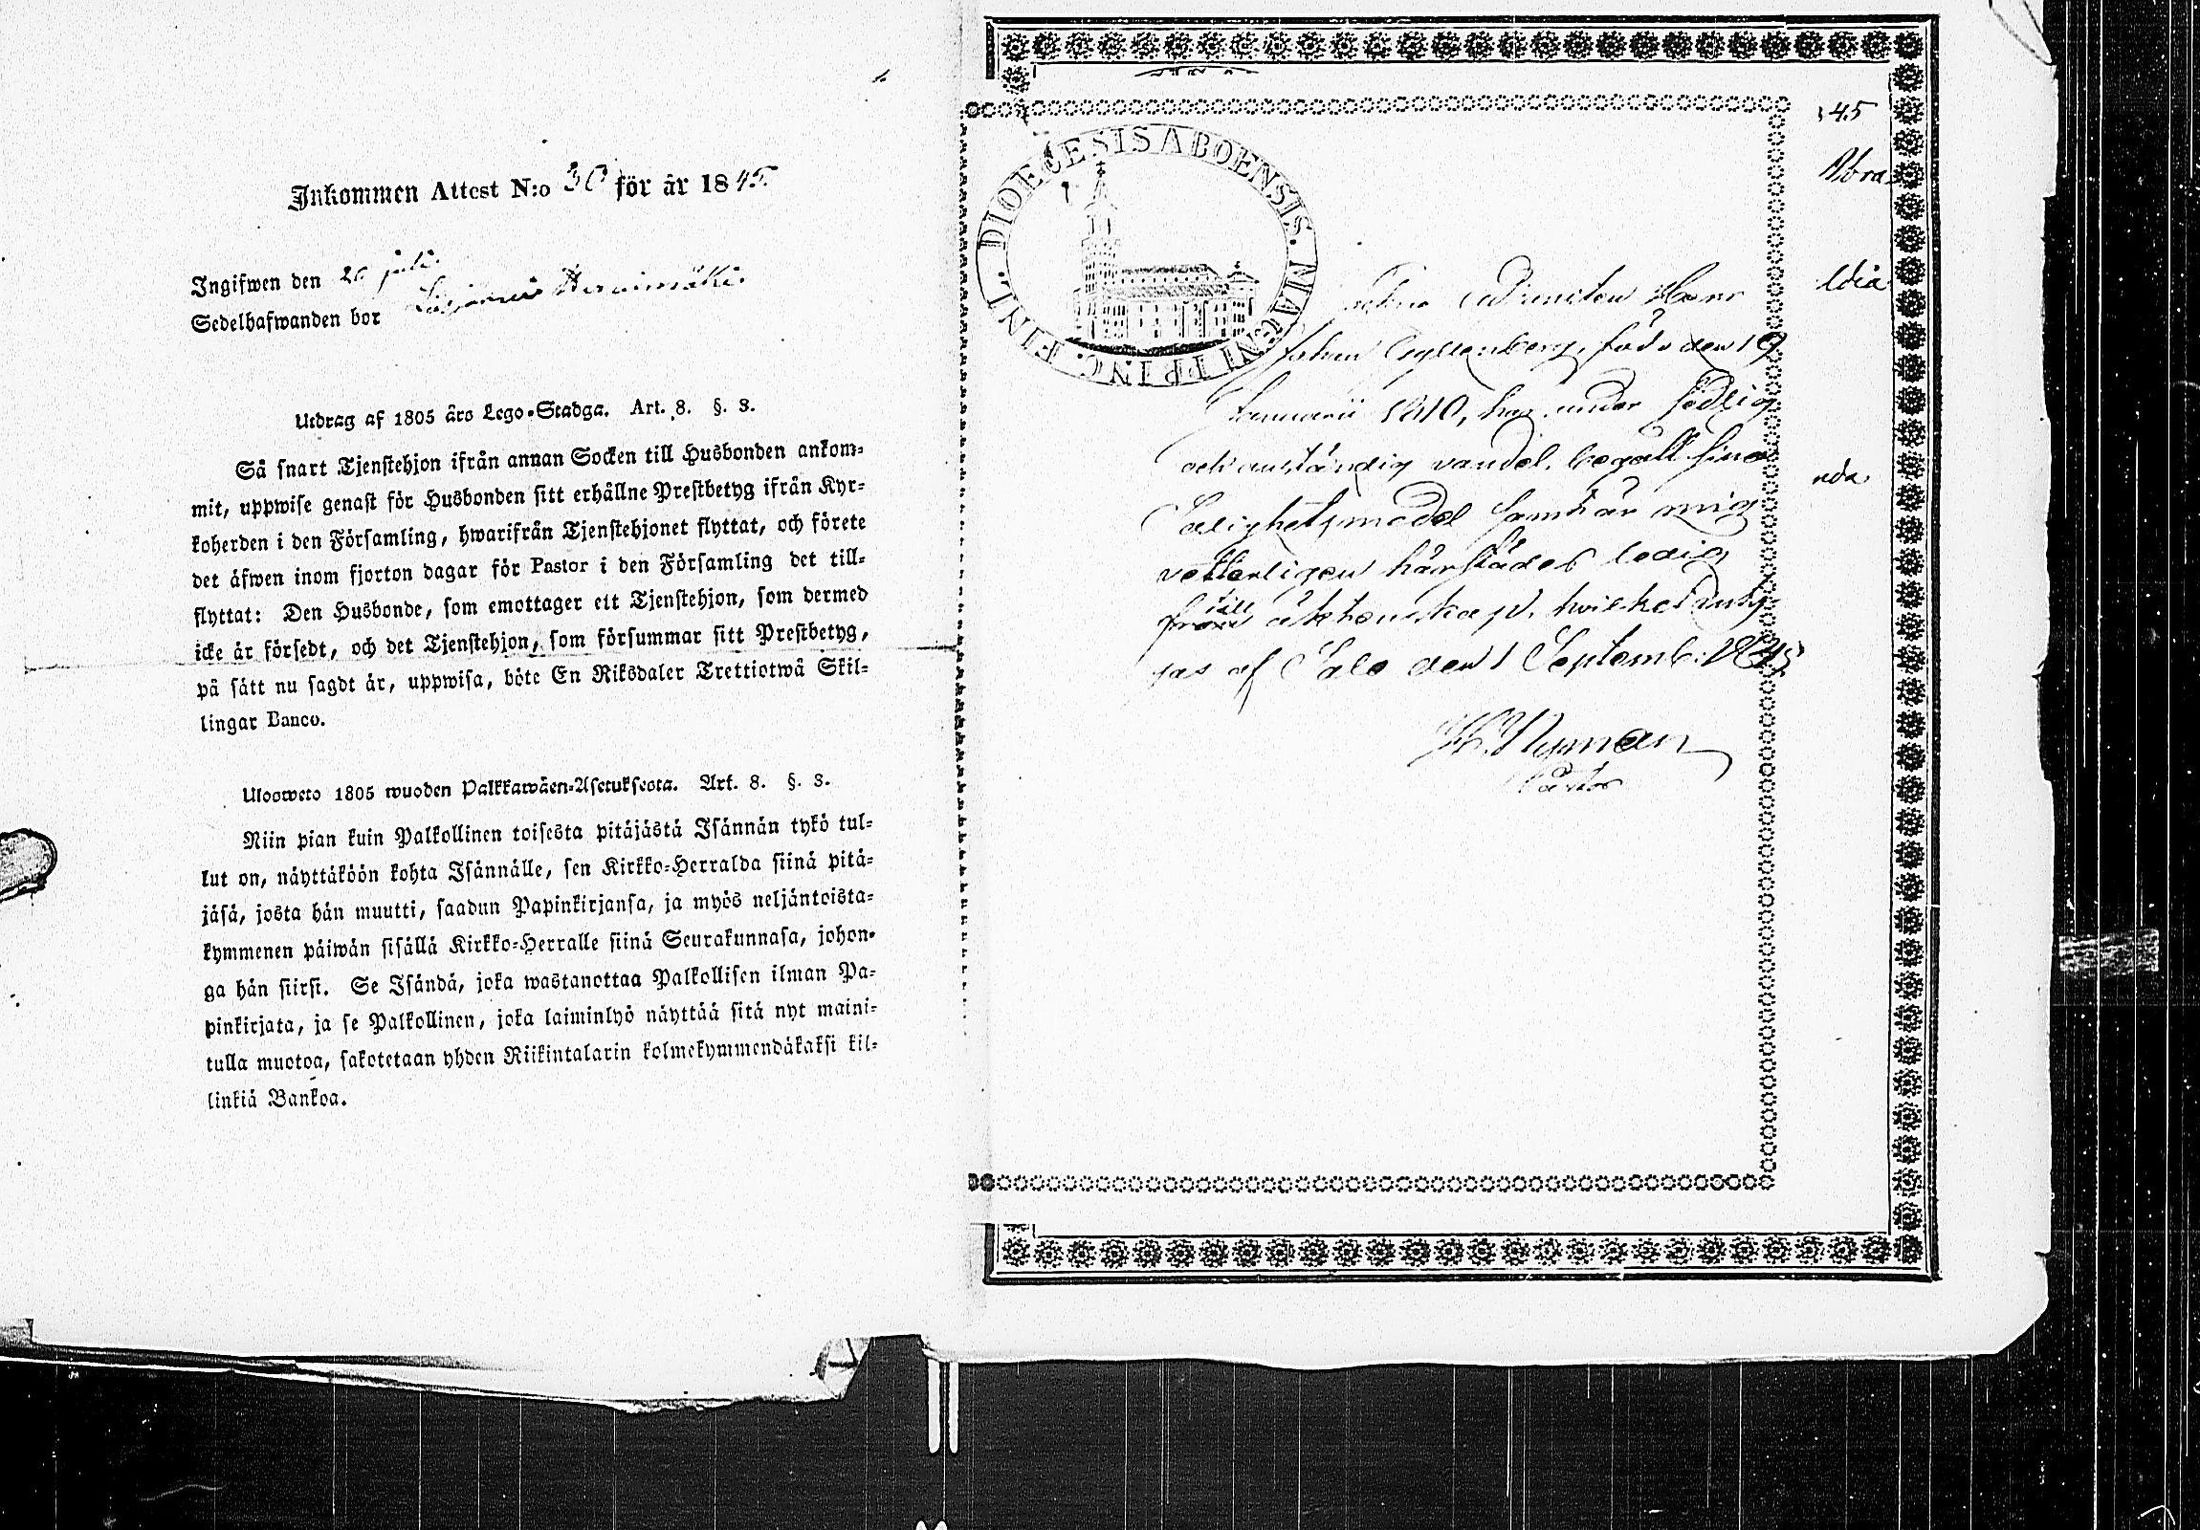 Inkommen Attest N:o 30 för år 1845.
Ingifwen den 26 juli.
Sedelhafwanden bor
Utdrag af 1805 års Lego-Stadga. Art. 8. §. 3.
Så snart Tjenstehjon ifrån annan Socken till Husbonden ankom-
mit, uppwise genast för Husbonden sitt erhållne Prestbetyg ifrån Kyr-
koherden i den Församling, hwarifrån Tjenstehjonet flyttat, och förete
det äfwen inom fjorton dagar för Pastor i den Församling det till-
flyttat: Den Husbonde, som emottager ett Tjenstehjon, som dermed
icke är försedt, och det Tjenstehjon, som försummar sitt Prestbetyg,
på sätt nu sagdt är, uppwisa, böte En Riksdaler Trettiotwå Skil-
lingar Banco.
Ulosweto 1805 wuoden Palkkawäen-Asetuksesta. Art. 8. §. 3.
Niin pian kuin Palkollinen toisesta pitäjästä Isännän tykö tul-
lut on, näyttäköön kohta Isännälle, sen Kirkko-Herralda siinä pitä-
jäsä, josta hän muutti, saadun Papinkirjansa, ja myös neljäntoista-
kymmenen päiwän sisällä Kirkko-Herralle siinä Seurakunnasa, johon-
ga hän siirsi. Se Isändä, joka wastanottaa Palkollisen ilman Pa-
pinkirjata, ja se Palkollinen, joka laiminlyö näyttää sitä nyt maini-
tulla muotoa, sakotetaan yhden Riikintalarin kolmekymmendäkaksi kil-
linkiä Bankoa.
DIOECESIS ABOENSIS. MAGNI PRINC. FINL.
Herr
Johan Gyllenberg, född den 19
Januarii 1810, har under sedlig
och anständig vandel, begått sina
Salighetsmedel samt är mig
vetterligen härstädes ledig
från till äktenskap, hvilket bety-
gas af Salo den 1 Septemb: 1845
H. Nyman
Pastor
45
Abra
ldia
nda